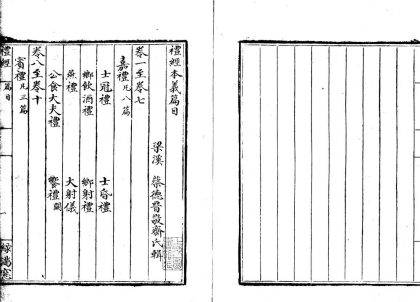 禮經本義篇目
梁溪 蔡德晉敬齋氏輯
卷一至卷七
嘉禮凡八篇
士冠禮 士昏禮
鄉飲酒禮 鄉射禮
燕禮 大射儀
公食大夫禮 饗禮闕
卷八至卷十
賓禮凡三篇
禮經 篇目